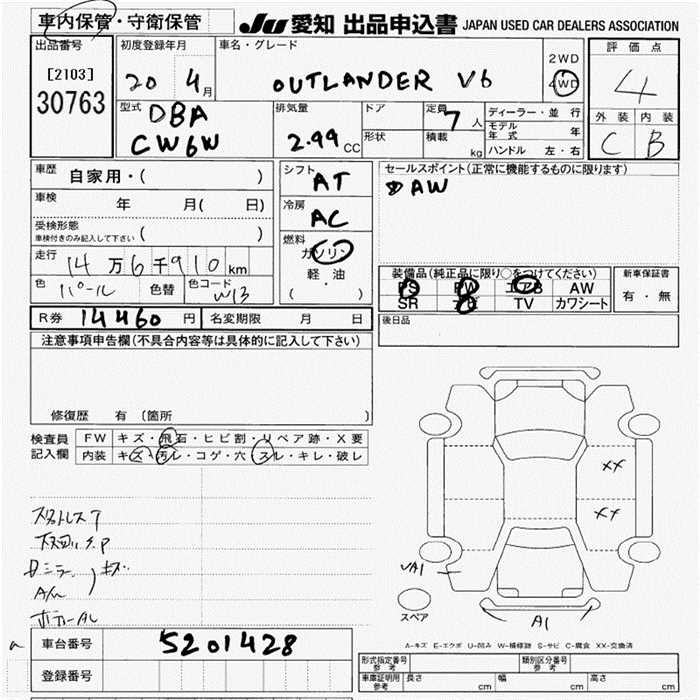 車内保管・守衛保管 JU 愛知 出品申込書 JAPAN USED CAR DEALERS ASSOCIATION
出品番号 初度登録年月 車名・グレード 評価点
[2103] 20 4月 OUTLANDER V6 2WD 4WD 4
30763
型式 DBA 排気量 ドア 定員 7人 ディーラー・並行 外装 内装
CW6W 2.99 CC 形状 積載 kg モデル年式 年 C B
ハンドル 左・右
車歴 自家用・( ) シフト AT セールスポイント(正常に機能するものに限ります)
車検 年 月( 日) 冷房 AC AW
受検形態 ( )
車検付きのみ記入して下さい
走行 14万6千910km 燃料 ガソリン
軽・油
( ・ )
色 パール 色替 色コード W13
装備品(純正品に限り○をつけてください) 新車保証書
PS PW エアB AW 有・無
SR ナビ TV カワシート
R券 14460円 名変期限 月 日 後日品
注意事項申告欄(不具合内容等は具体的に記入して下さい)
修復歴 有 (箇所 )
検査員 FW キズ・飛石・ヒビ割・リペア跡・X要
記入欄 内装 キズ・汚レ・コゲ・穴・スレ・キレ・破レ
XX
XX
VA1
スペアー
A1
A-キズ E-エクボ U-凹み W-補修跡 S-サビ C-腐食 XX-交換済
車台番号 5201428
登録番号
形式指定番号 参考 類別区分番号 参考
車庫証明用 参考 長さ cm 幅 cm 高さ cm